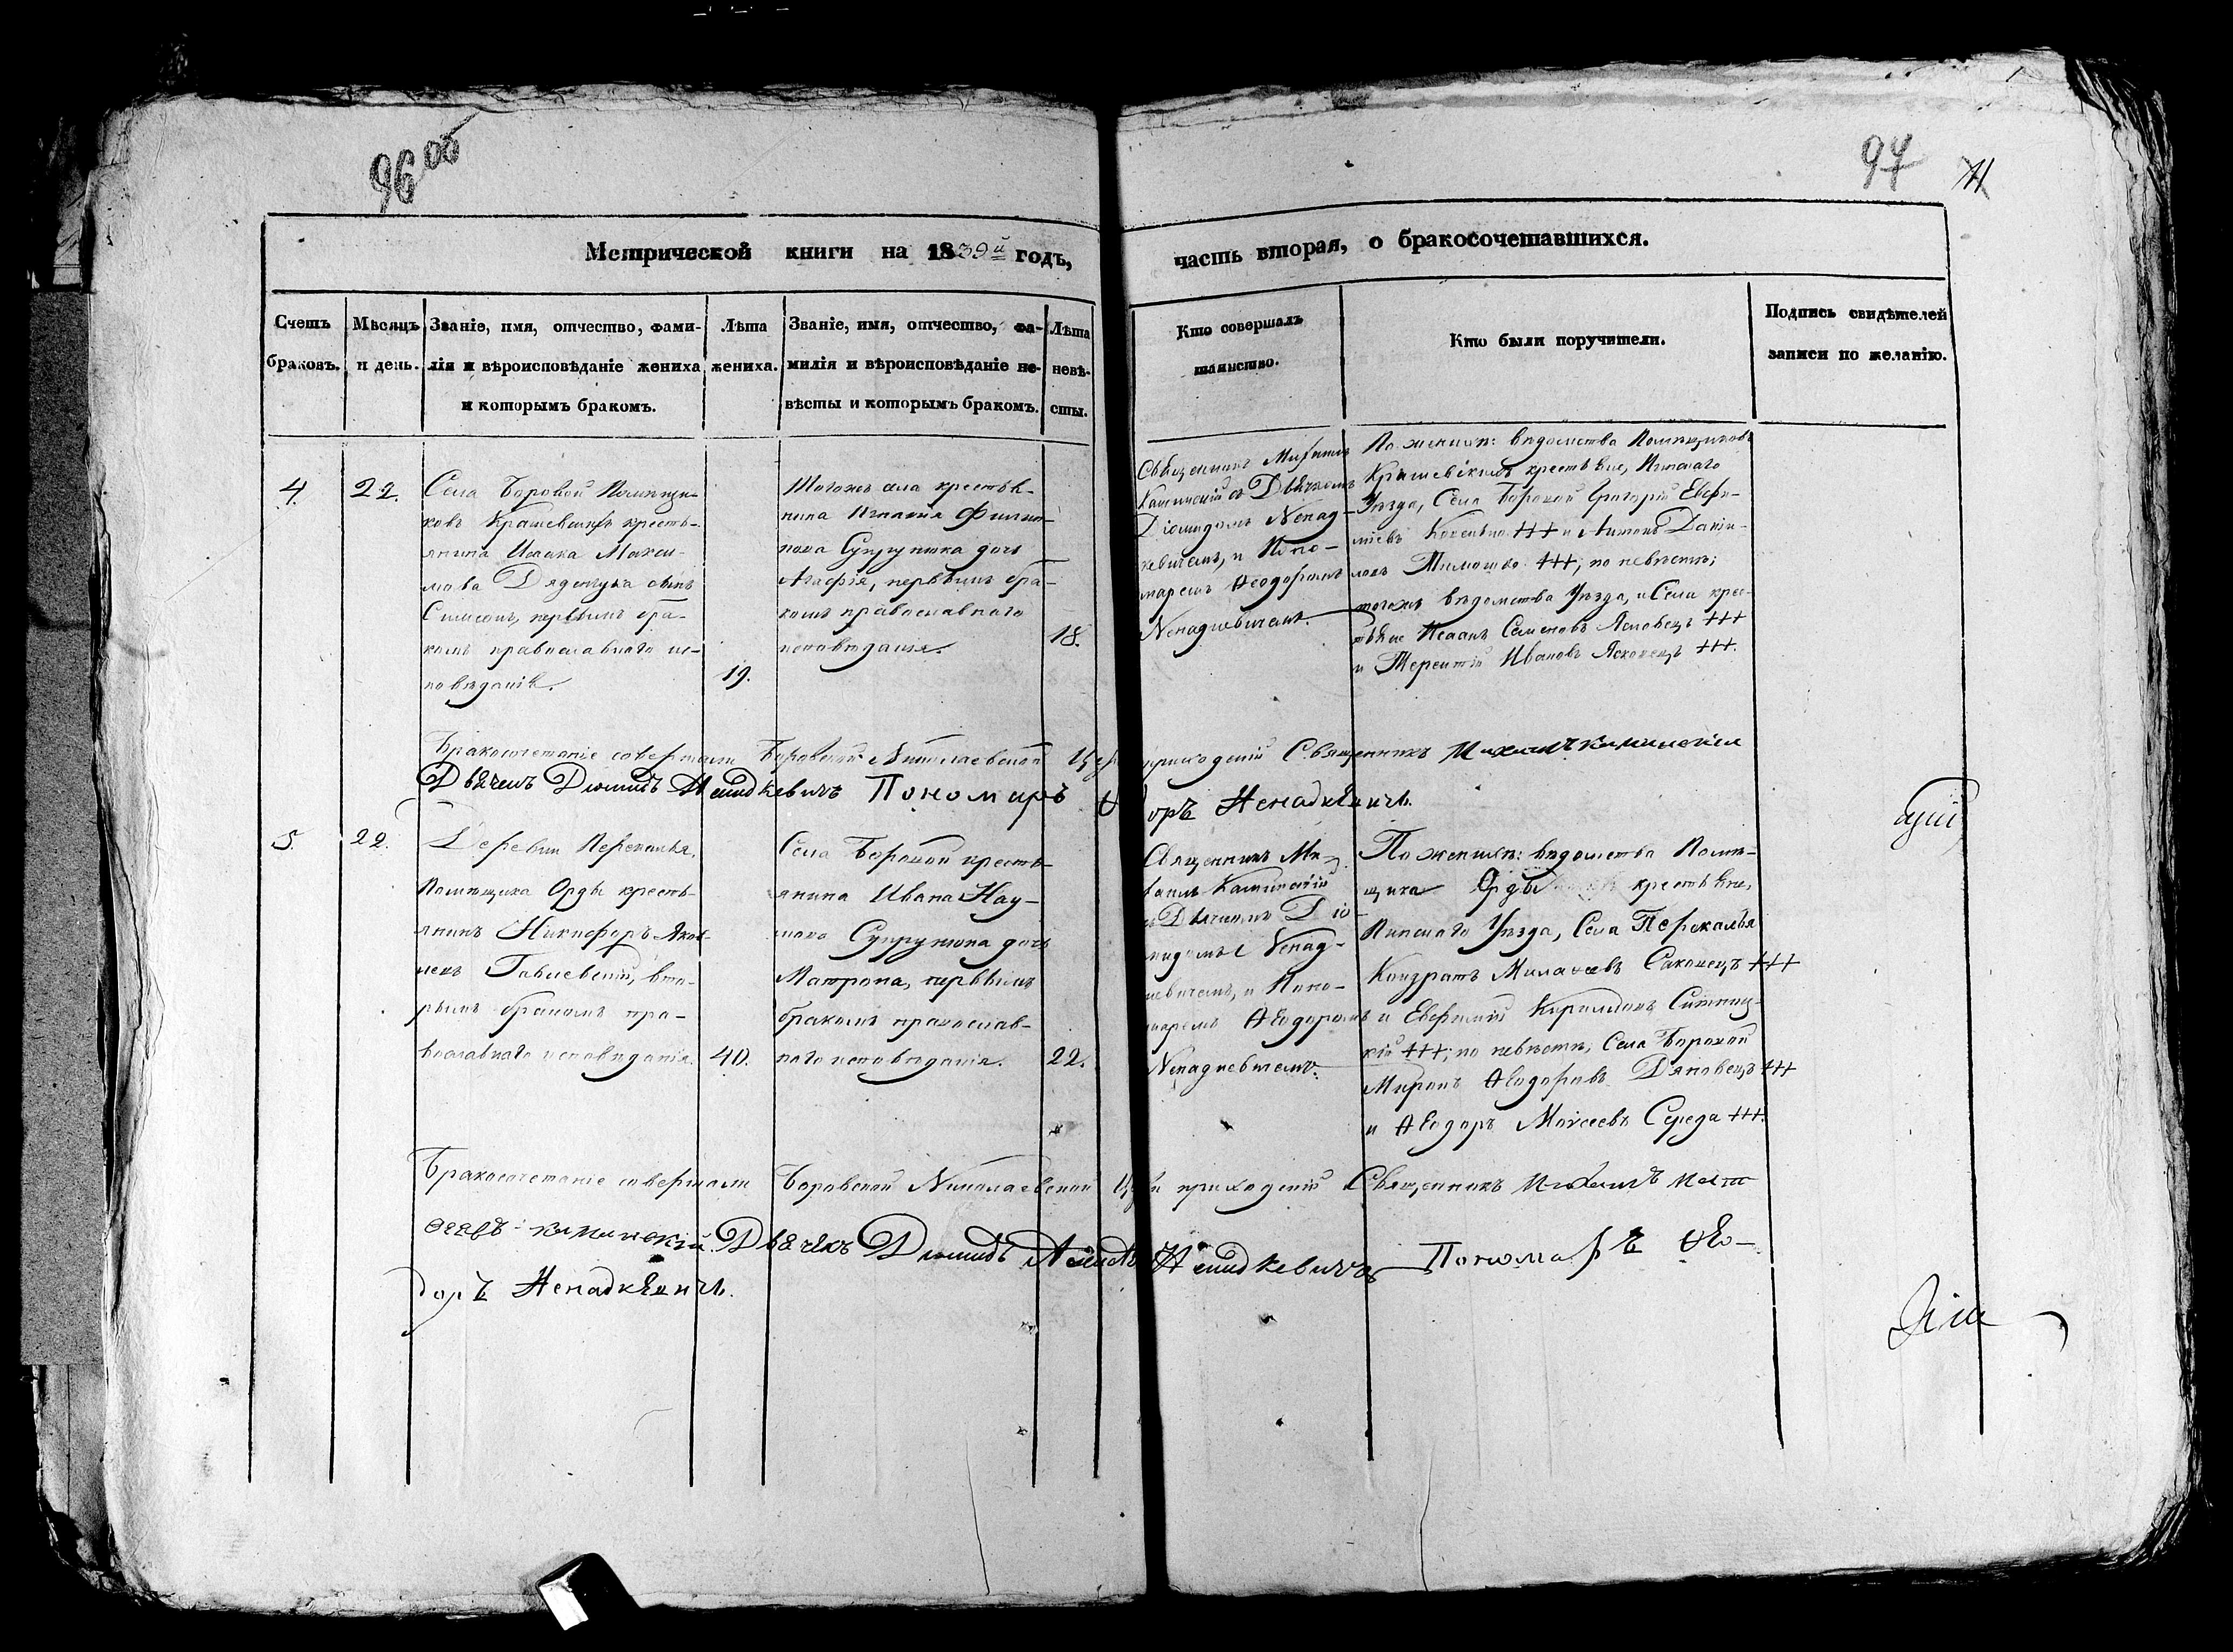 96 об
97
Метрической книги на 1839й годъ,
часть вторая, о бракосочетавшихся.
Счетъ браковъ.
Мѣсяцъ и день.
Званіе, имя, отчество, фами-
лія и вѣроисповѣданіе жениха
и которымъ бракомъ.
Лѣта
жениха.
Званіе, имя, отчество, фа-
милія и вѣроисповѣданіе не-
вѣсты и которымъ бракомъ.
Лѣта
невѣ-
сты.
Кто совершалъ
таинство.
Кто были поручители.
Подпись свидѣтелей
записи по желанію.
4.
22.
Села Боровой Помѣщи-
ковъ крестъ-
янина Исаака Макси-
мова сынъ
Симеонъ, первымъ бра-
комъ православнаго ис-
повѣданія.
19.
Тогожъ села крестья-
нина Игнатія Филип-
пова Супрунюка дочь
Агафія, первымъ бра-
комъ православнаго
исповѣданія.
18.
Священникъ Михаилъ
Каминскій съ Дьячкомъ
Діомидомъ Ненад-
кевичемъ, и Поно-
маремъ Ѳеодоромъ
Ненадкевичемъ.
По женихѣ: вѣдомства Помѣщиковъ
крестьяне, Пинскаго
Уѣзда, Села Боровой Григорій Евфи-
міевъ +++ и Антонъ Дани-
ловъ +++; по невѣстѣ;
тогожъ вѣдомства Уѣзда, и Села крес-
тьяне Исаакъ Семеновъ +++
и Терентій Ивановъ +++.
Бракосочетаніе совершали Боровской Николаевской приходскій Священникъ Михаилъ Каминскій
Дьячекъ Диомидъ Ненадкевичъ Пономаръ
оръ Ненадкевичъ.
5.
22.
Деревни Перекалья,
Помѣщика Орды кресть-
янинъ Никифоръ Яков-
левъ вто-
рымъ бракомъ пра-
вославнаго исповѣданія.
40.
Села Боровой кресть-
янина Ивана Нау-
мова Супрунюка дочь
Матрона, первымъ
бракомъ православ-
наго исповѣданія.
22.
Священникъ Ми-
хаилъ Каминскій
съ Дьячкомъ Діо-
мидомъ Ненад-
кевичемъ, и Поно-
маремъ Ѳеодоромъ
Ненадкевичемъ.
По женихѣ: вѣдомства Помѣ-
щика Орды крестьяне,
Пинскаго Уѣзда, Села Перекалья
Кондратъ +++
и Евфимій Кириловъ Ситниц-
кій +++; по невѣстѣ, Села Боровой
Миронъ Ѳеодоровъ +++
и Ѳеодоръ Моисеевъ Середа +++.
Бракосочетаніе совершали Боровской Николаевской приходскій Священникъ Михаилъ
Каминскій Дьячекъ Диомидъ Ненадкевичъ Пономаръ Ѳео-
доръ Ненадкевичъ.